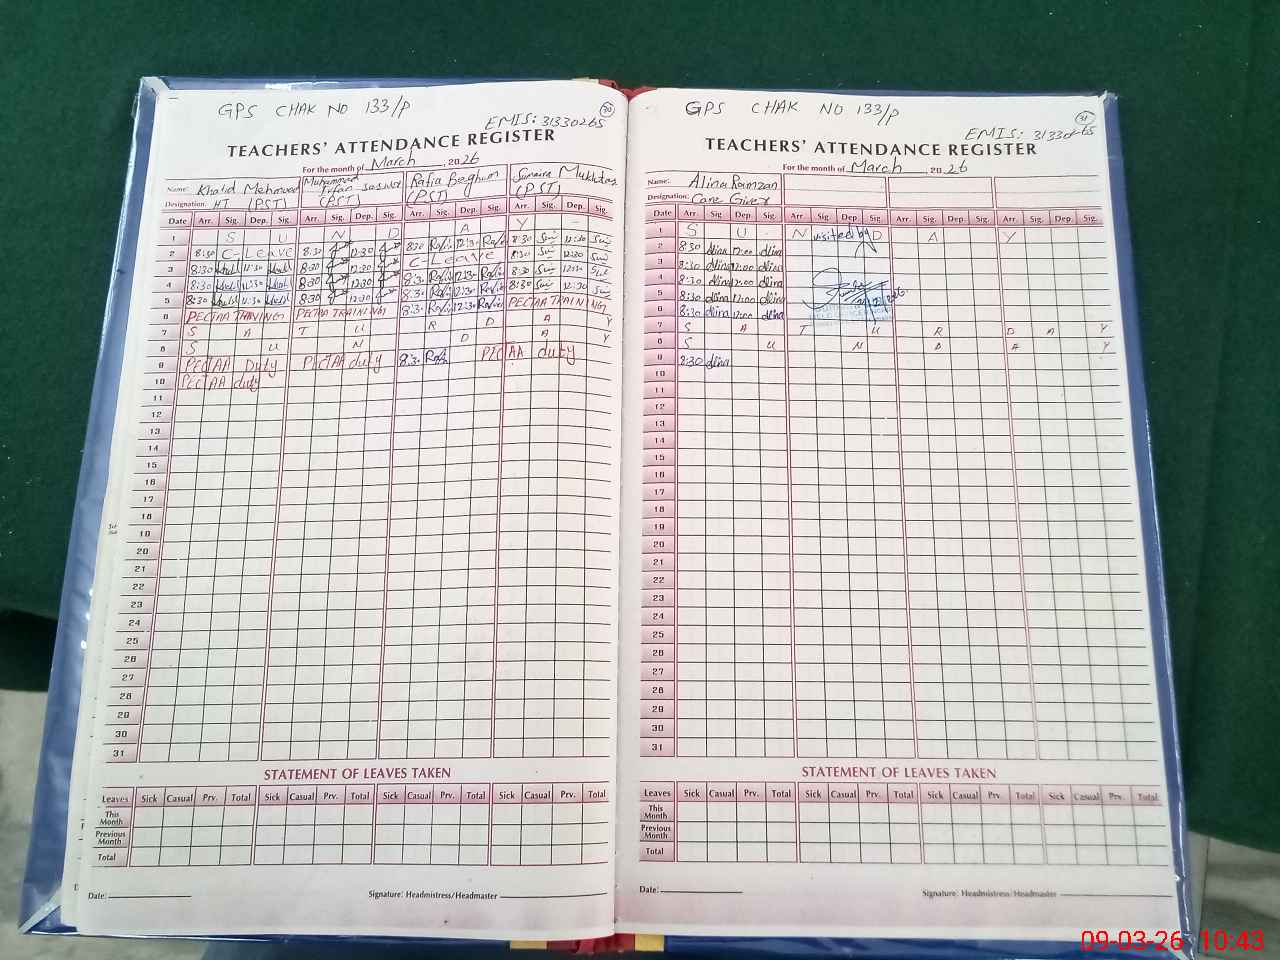 GPS CHAK NO 133/P
30
EMIS: 31330265
TEACHERS' ATTENDANCE REGISTER
For the month of March, 2026
Name: Khalid Mehmood Muhammad Irfan Rafia Beghum Sumaira Mukhtar
Designation: HT (PST) (PST) (PST) (PST)
Date Arr. Sig. Dep. Sig. Arr. Sig. Dep. Sig. Arr. Sig. Dep. Sig. Arr. Sig. Dep. Sig.
1 S U N D A Y
2 8:30 C-Leave 8:30 12:30 8:30 12:30 8:30 12:30
3 8:30 12:30 8:30 12:30 C-Leave 8:30 12:30
4 8:30 12:30 8:30 12:30 8:30 12:30 8:30 12:30
5 8:30 12:30 8:30 12:30 8:30 12:30 8:30 12:30
6 PECTAA TRAINING PECTAA TRAINING 8:30 12:30 PECTAA TRAINING
7 S A T U R D A Y
8 S U N D A Y
9 PECTAA Duty PECTAA duty 8:30 PECTAA duty
10 PECTAA duty
11
12
13
14
15
16
17
18
19
20
21
22
23
24
25
26
27
28
29
30
31
STATEMENT OF LEAVES TAKEN
Leaves Sick Casual Prv. Total Sick Casual Prv. Total Sick Casual Prv. Total Sick Casual Prv. Total
This Month
Previous Month
Total
Date: Signature: Headmistress/Headmaster
GPS CHAK NO 133/P
31
EMIS: 31330265
TEACHERS' ATTENDANCE REGISTER
For the month of March, 2026
Name: Alina Ramzan
Designation: Care Giver
Date Arr. Sig. Dep. Sig. Arr. Sig. Dep. Sig. Arr. Sig. Dep. Sig. Arr. Sig. Dep. Sig.
1 S U N D A Y
visited by
2 8:30 Alina 12:00 Alina
3 8:30 Alina 12:00 Alina
4 8:30 Alina 12:00 Alina
5 8:30 Alina 12:00 Alina
6 8:30 Alina 12:00 Alina
7 S A T U R D A Y
8 S U N D A Y
9 8:30 Alina
10
11
12
13
14
15
16
17
18
19
20
21
22
23
24
25
26
27
28
29
30
31
STATEMENT OF LEAVES TAKEN
Leaves Sick Casual Prv. Total Sick Casual Prv. Total Sick Casual Prv. Total Sick Casual Prv. Total
This Month
Previous Month
Total
Date: Signature: Headmistress/Headmaster
09-03-26 10:43